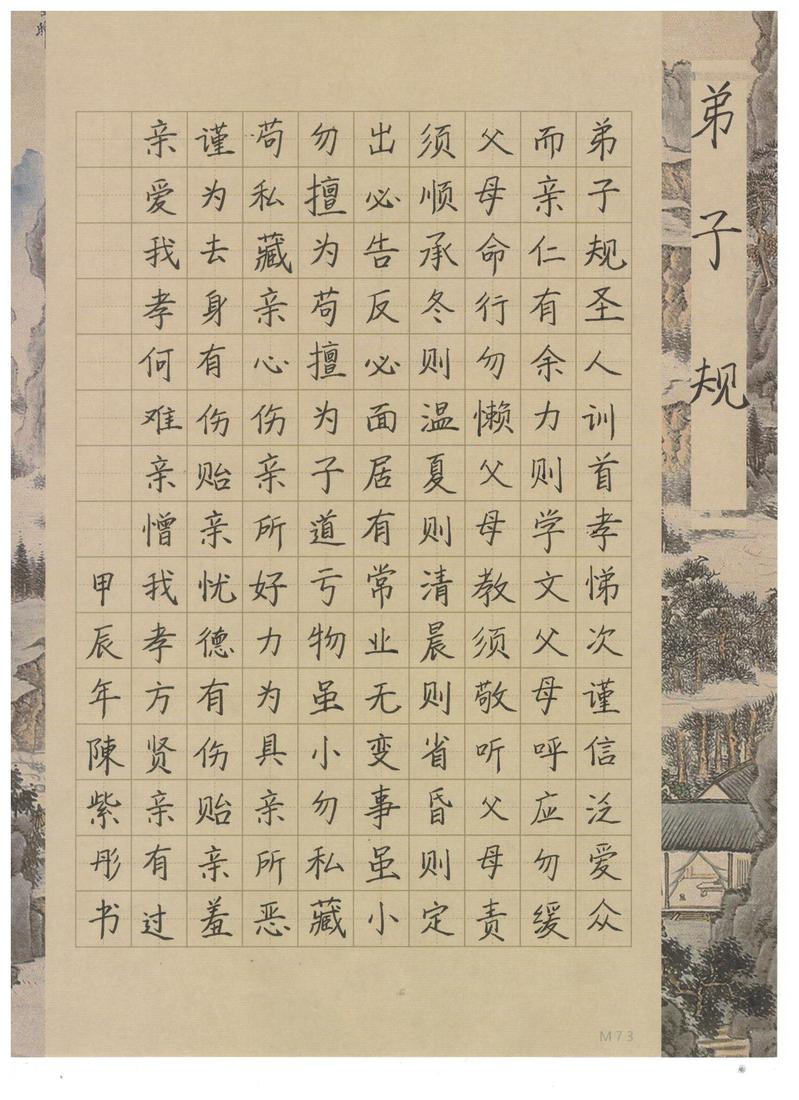 弟子规
弟子规圣人训首孝悌次谨信泛爱众
而亲仁有余力则学文父母呼应勿缓
父母命行勿懒父母教须敬听父母责
须顺承冬则温夏则清晨则省昏则定
出必告反必面居有常业无变事虽小
勿擅为苟擅为子道亏物虽小勿私藏
苟私藏亲心伤亲所好力为具亲所恶
谨为去身有伤贻亲忧德有伤贻亲羞
亲爱我孝何难亲憎我孝方贤亲有过
甲辰年陳紫彤书
M73